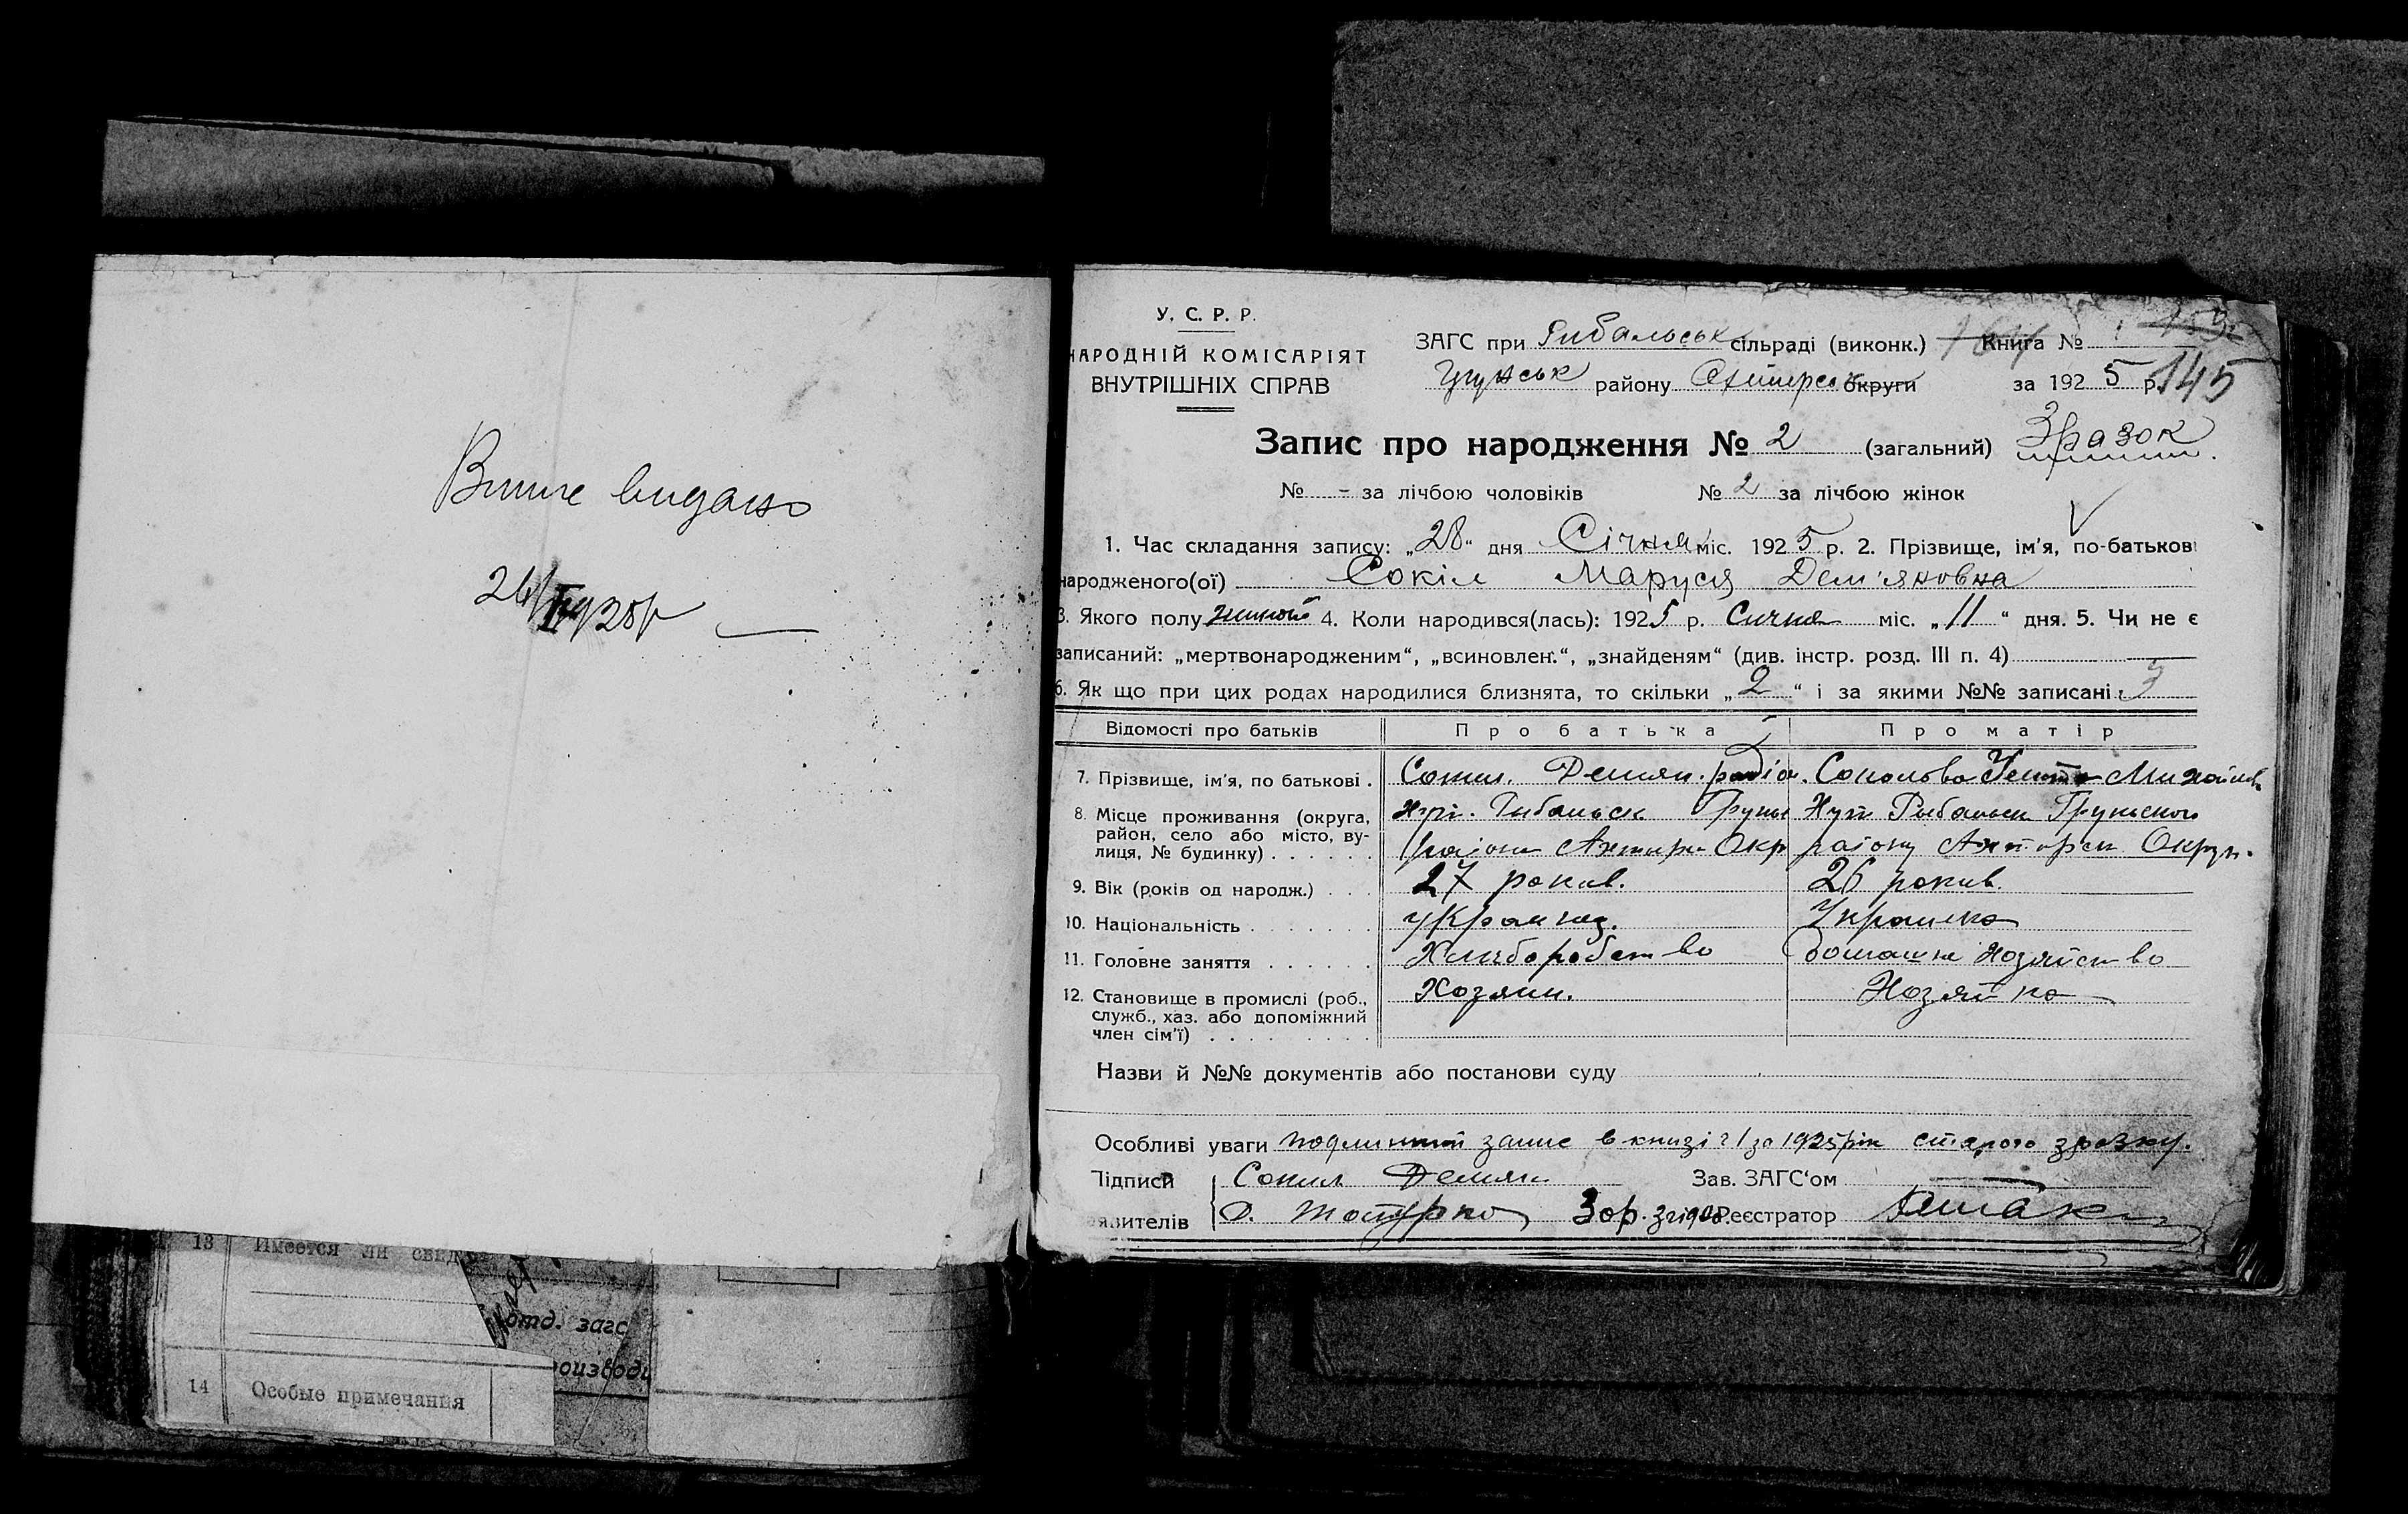 видано
У. С. Р. Р.
НАРОДНІЙ КОМІСАРІЯТ
ВНУТРІШНІХ СПРАВ
ЗАГС при Рибальськ сільраді (виконк.) Книга №
району округи за 1925 р. 145
Запис про народження № 2 (загальний) Зразок
№ - за лічбою чоловіків № 2 за лічбою жінок
1. Час складання запису: „28“ дня Січня міс. 1925 р. 2. Прізвище, ім'я, по-батькові
народженого(ої) Сокіл Маруся Дем'яновна
3. Якого полу 4. Коли народився(лась): 1925 р. Сичня міс. „11“ дня. 5. Чи не є
записаний: „мертвонародженим“, „всиновлен.“, „знайденям“ (див. інстр. розд. III п. 4)
6. Як що при цих родах народилися близнята, то скільки „2“ і за якими №№ записані 3
Відомості про батьків Про батька Про матір
7. Прізвище, ім'я, по батькові . Демян.
8. Місце проживання (округа,
район, село або місто, ву-
лиця, № будинку) . . . . . .
Рибальск
району
9. Вік (років од народж.) . . . 27 рокив. 26 рокив.
10. Національність . . . . . . . Украинец. Украинка
11. Головне заняття . . . . . . Хлиборобство Домашне Хозяйство
12. Становище в промислі (роб., Хозяин. Хозяйка
служб., хаз. або допоміжний
член сім'ї) . . . . . . . . .
Назви й №№ документів або постанови суду
Особливі уваги запис в книзі за 1925 рік старого зразку.
Підписи Сокил Демян Зав. ЗАГС'ом
явителів Реєстратор
13 Имеется ли свид
отд. загс
роизводи
14 Особые примечания